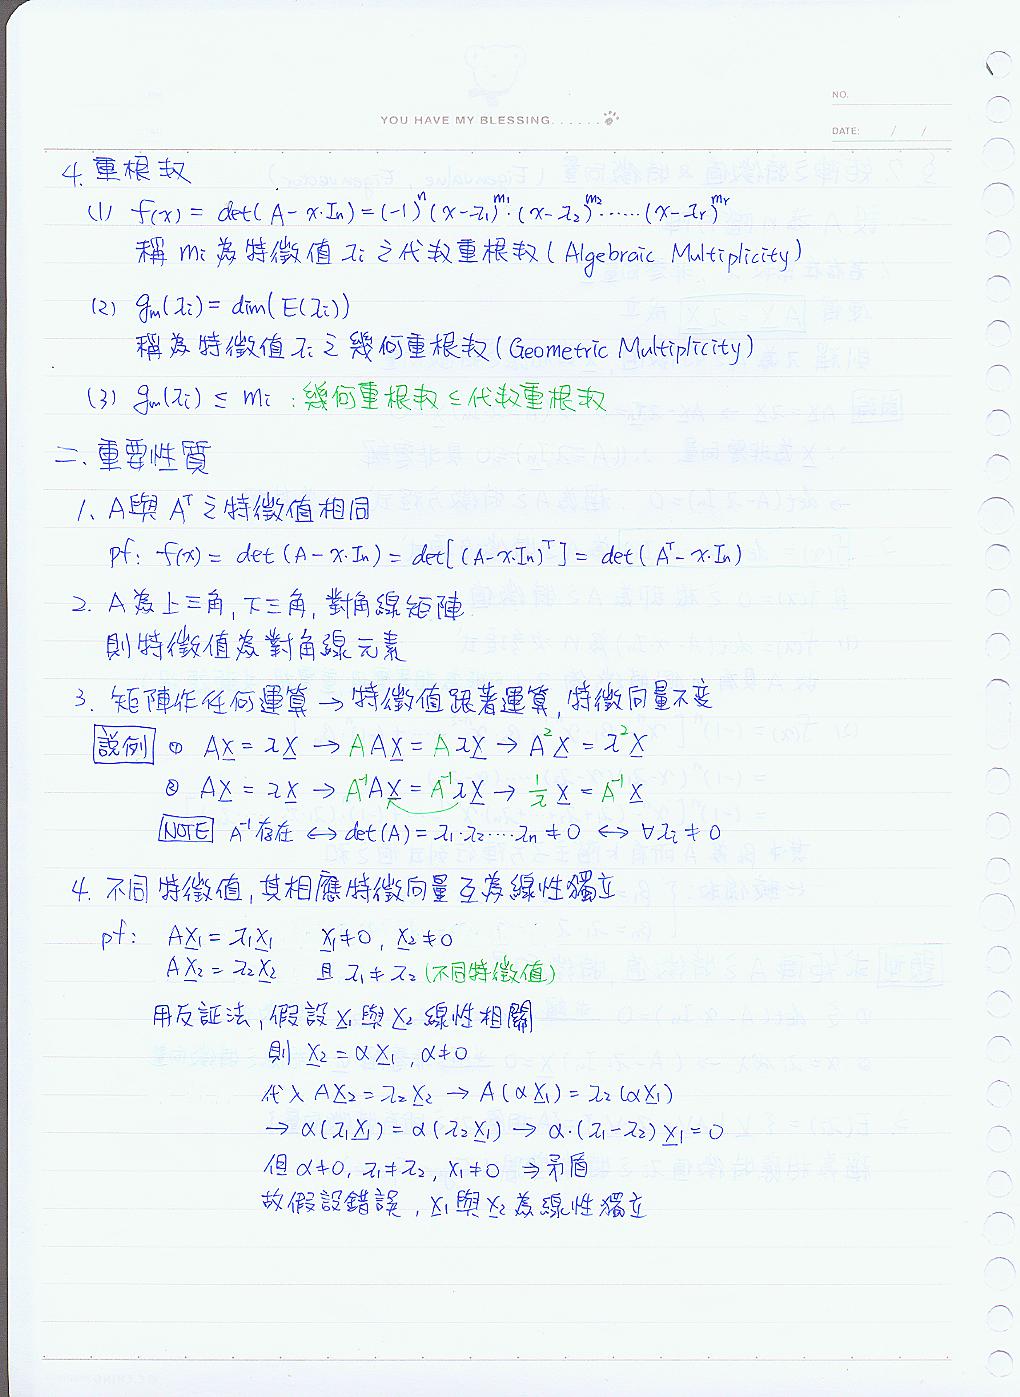 NO.
YOU HAVE MY BLESSING......
DATE: / /
4. 重根数
(1) f(x) = det(A-x·In) = (-1)^n (x-λ1)^m1·(x-λ2)^m2·....·(x-λr)^mr
稱 mi 為特徵值 λi 之代数重根数(Algebraic Multiplicity)
(2) gm(λi) = dim(E(λi))
稱為特徵值 λi 之幾何重根数(Geometric Multiplicity)
(3) gm(λi) ≤ mi : 幾何重根数 ≤ 代数重根数
二、重要性質
1、A與 A^T 之特徵值相同
pf: f(x) = det(A-x·In) = det[(A-x·In)^T] = det(A^T-x·In)
2. A為上三角,下三角,對角線矩陣
則特徵值為對角線元素
3. 矩陣作任何運算→特徵值跟著運算,特徵向量不变
說例 ① AX = λX → AAX = AλX → A²X = λ²X
② AX = λX → A⁻¹AX = A⁻¹λX → 1/λ X = A⁻¹X
NOTE A⁻¹存在 ↔ det(A) = λ1·λ2····λn ≠ 0 ↔ ∀λi ≠ 0
4. 不同特徵值,其相應特徵向量互為線性獨立
pf: AX1 = λ1X1 X1≠0, X2≠0
AX2 = λ2X2 且 λ1≠λ2 (不同特徵值)
用反証法,假設 X1與X2 線性相關
則 X2 = αX1, α≠0
代入 AX2 = λ2X2 → A(αX1) = λ2(αX1)
→ α(λ1X1) = α(λ2X1) → α·(λ1-λ2)X1 = 0
但 α≠0, λ1≠λ2, X1≠0 ⇒矛盾
故假設錯誤, X1與X2為線性獨立